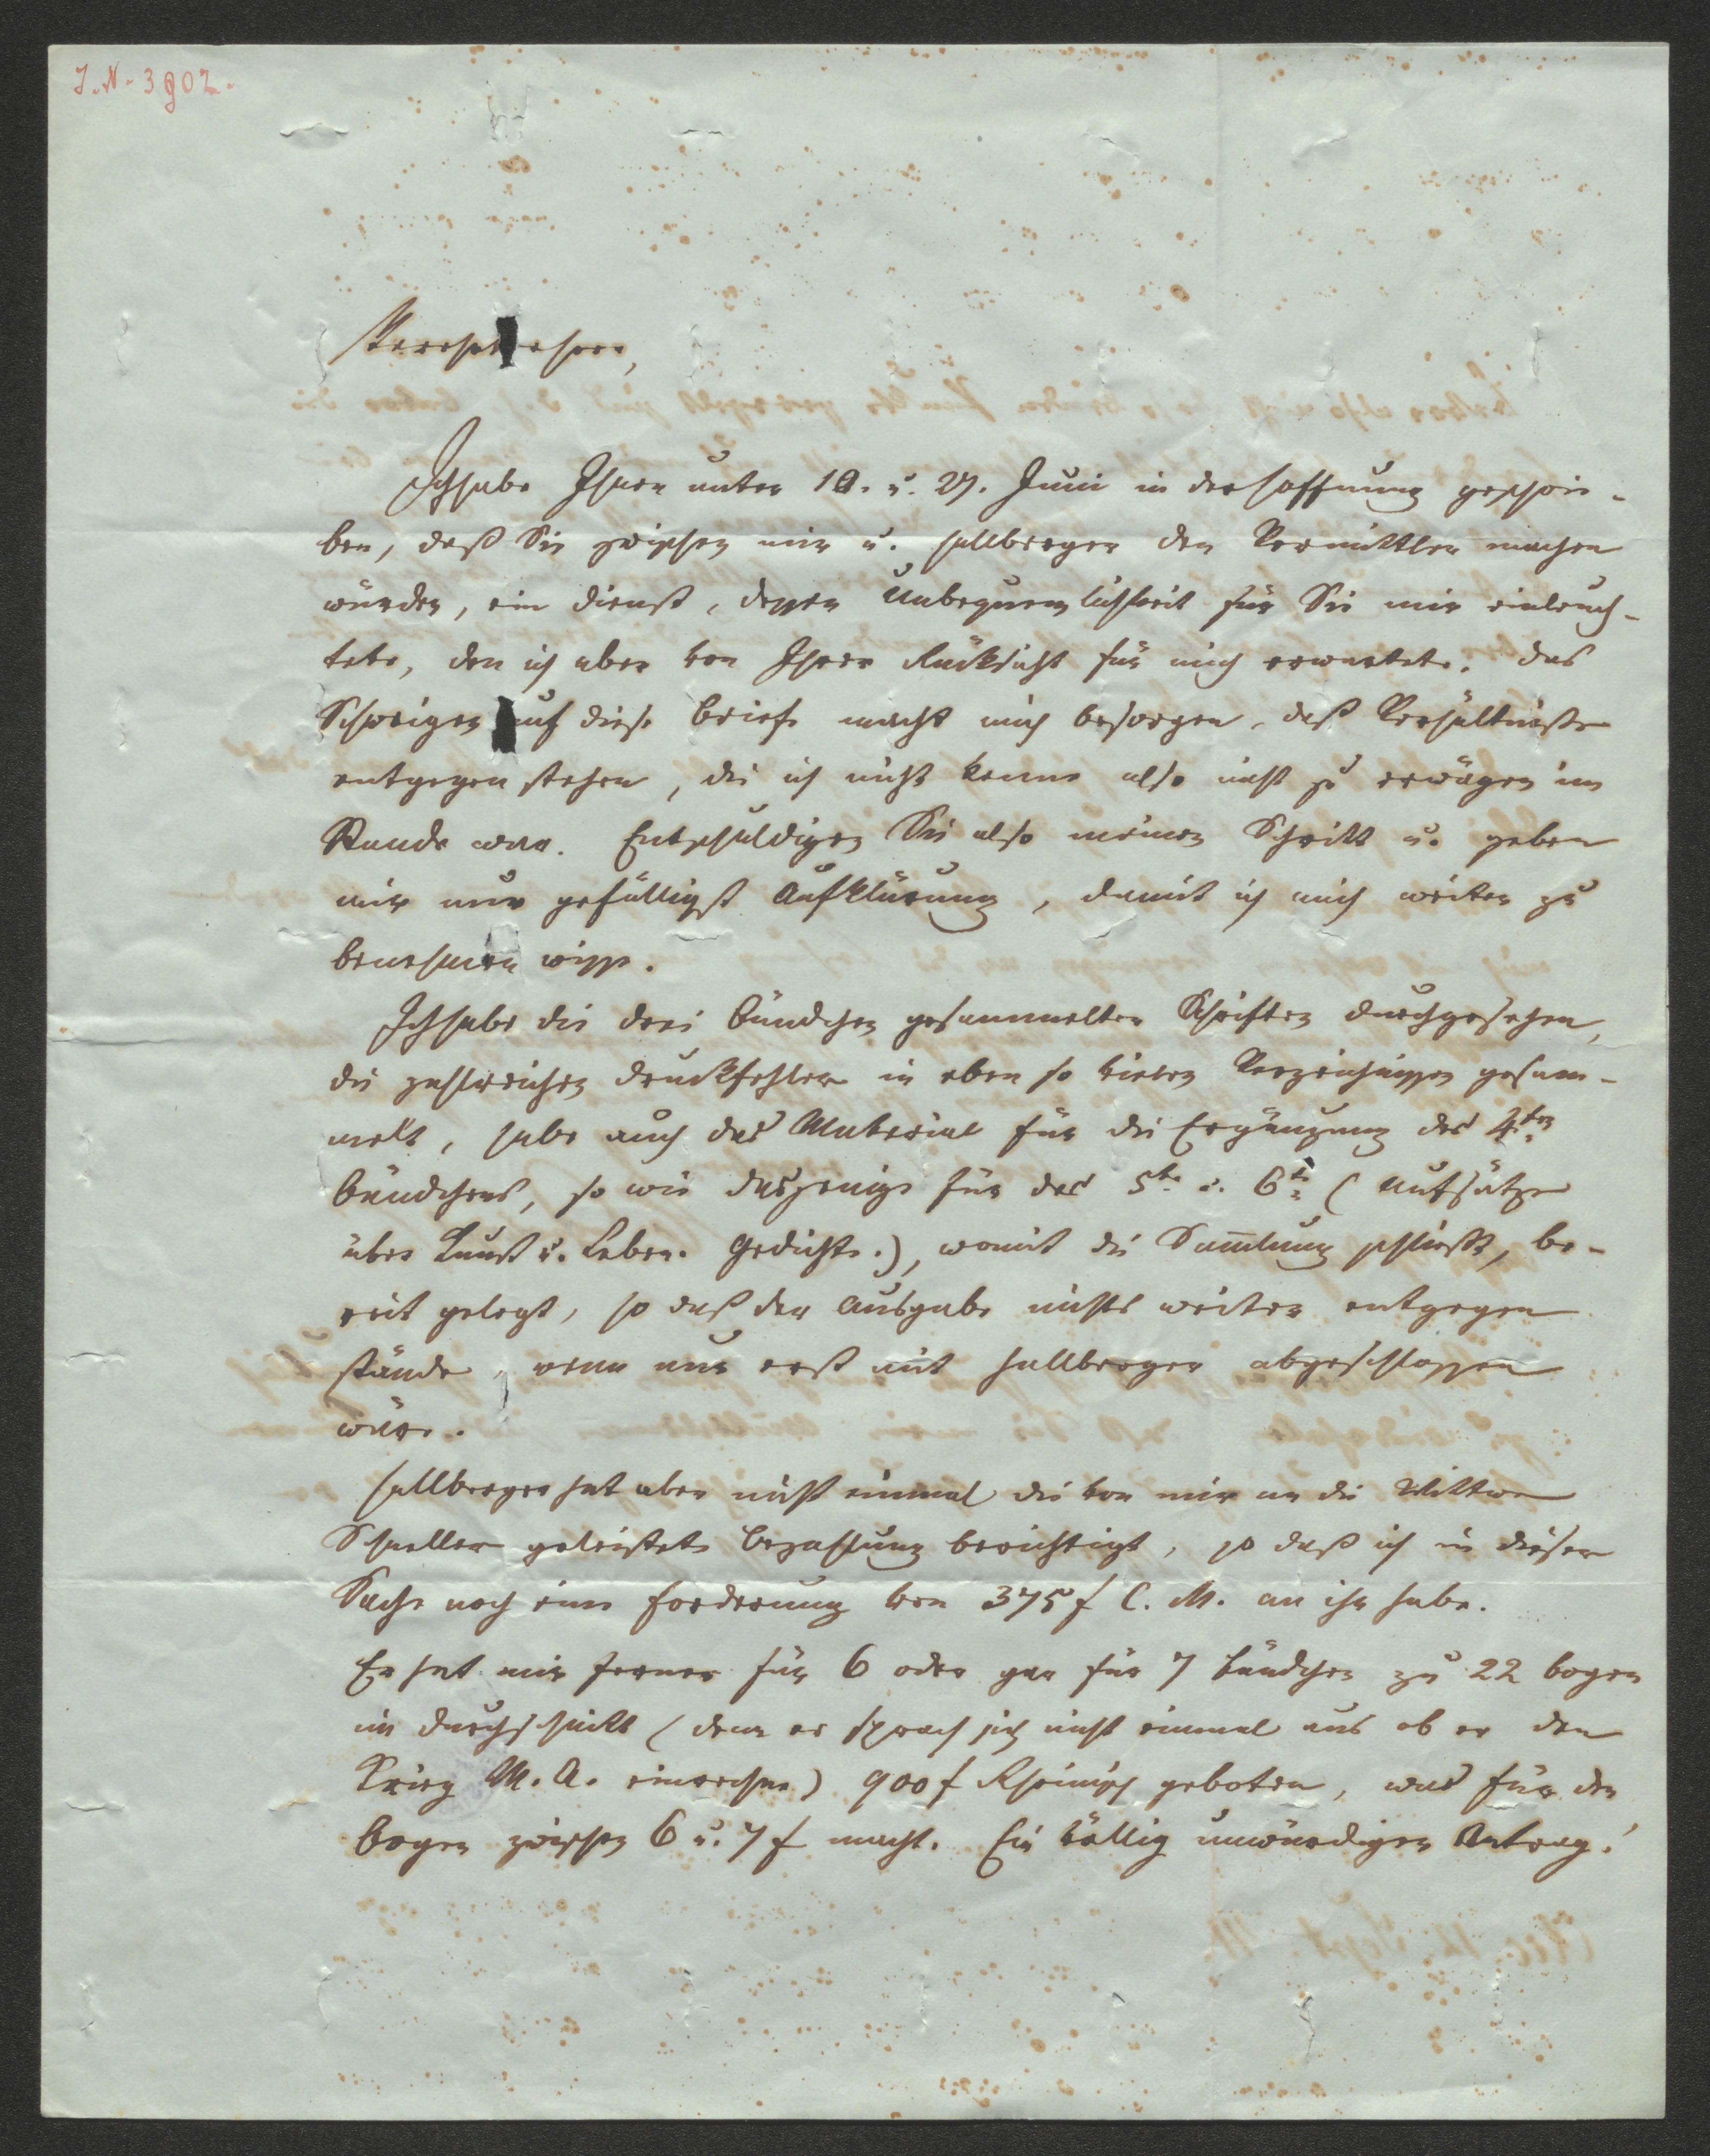 I. N. 3902.
Verehrtester,
Ich habe Ihnen unter 10. u. 27. Juni in der Hoffnung geschrie-
ben, daß Sie zwischen mir u. Hallberger den Vermittler machen
würden, ein Dienst, dessen Unbequemlichkeit für Sie mir einleuch-
tete, den ich aber von Ihrer Rücksicht für mich erwartete. Das
Schweigen auf diese Briefe macht mich besorgen, daß Verhältnisse
entgegen stehen, die ich nicht kenne also nicht zu erwägen im
Stande war. Entschuldigen Sie also meinen Schritt u. geben
mir nur gefälligst Aufklärung, damit ich mich weiter zu
benehmen wisse.
Ich habe die drei Bändchen gesammelter Schriften durchgesehen,
die zahlreichen Druckfehler in eben so vielen Verzeichnissen gesam-
melt, habe auch das Material für die Ergänzung des 4ten
Bändchens, so wie dasjenige für das 5te u. 6te (Aufsätze
über Kunst u. Leben. Gedichte.), womit die Sam̄lung schließt, be-
reit gelegt, so daß der Ausgabe nichts weiter entgegen
stände, wenn nur erst mit Hallberger abgeschlossen
wäre.
Hallberger hat aber nicht einmal die von mir an die Wittwe
Schneller geleistete Bezahlung berichtigt, so daß ich in dieser
Sache noch eine Forderung von 375 f C. M. an ihn habe.
Er hat mir ferner für 6 oder gar für 7 Bändchen zu 22 Bogen
im Durchschnitt (denn er sprach sich nicht einmal aus ob er den
Krieg M. A. einrechne) 900 f Rheinisch geboten, was für den
Bogen zwischen 6 u. 7 f macht. Ein völlig unwürdiger Antrag!